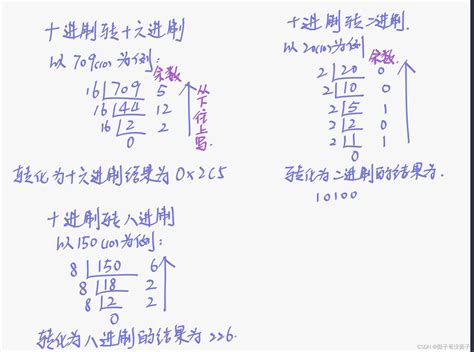 十进制转十六进制
以709(10)为例:
余数
16 709 5
16 44 12
16 2 2
0
从下往上写.
转化为十六进制结果为0x2C5
十进制转八进制
以150(10)为例:
8 150 6
8 18 2
8 2 2
0
转化为八进制的结果为226.
十进制转二进制.
以20(10)为例
余数
2 20 0
2 10 0
2 5 1
2 2 0
2 1 1
0
转化为二进制的结果为.
10100